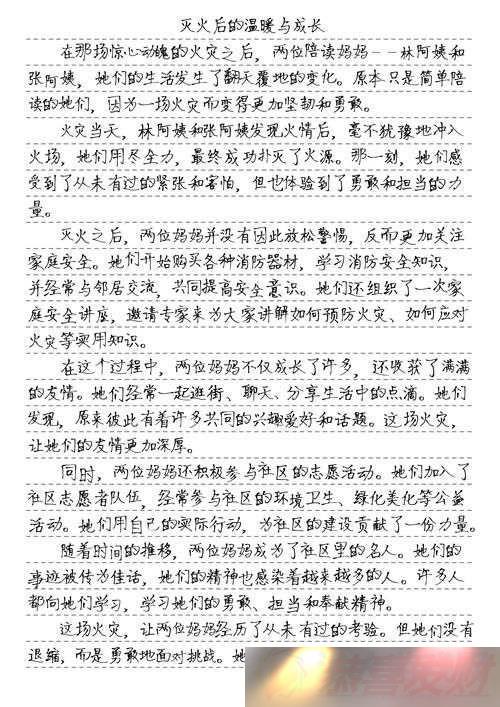 灭火后的温暖与成长
在那场惊心动魄的火灾之后，两位陪读妈妈－－林阿姨和
张阿姨，她们的生活发生了翻天覆地的变化。原本只是简单陪
读的她们，因为一场火灾而变得更加坚韧和勇敢。
火灾当天，林阿姨和张阿姨发现火情后，毫不犹豫地冲入
火场，她们用尽全力，最终成功扑灭了火源。那一刻，她们感
受到了从未有过的紧张和害怕，但也体验到了勇敢和担当的力
量。
灭火之后，两位妈妈并没有因此放松警惕，反而更加关注
家庭安全。她们开始购买各种消防器材，学习消防安全知识，
并经常与邻居交流，共同提高安全意识。她们还组织了一次家
庭安全讲座，邀请专家来为大家讲解如何预防火灾、如何应对
火灾等实用知识。
在这个过程中，两位妈妈不仅成长了许多，还收获了满满
的友情。她们经常一起逛街、聊天、分享生活中的点滴。她们
发现，原来彼此有着许多共同的兴趣爱好和话题。这场火灾，
让她们的友情更加深厚。
同时，两位妈妈还积极参与社区的志愿活动。她们加入了
社区志愿者队伍，经常参与社区的环境卫生、绿化美化等公益
活动。她们用自己的实际行动，为社区的建设贡献了一份力量。
随着时间的推移，两位妈妈成为了社区里的名人。她们的
事迹被传为佳话，她们的精神也感染着越来越多的人。许多人
都向她们学习，学习她们的勇敢、担当和奉献精神。
这场火灾，让两位妈妈经历了从未有过的考验。但她们没有
退缩，而是勇敢地面对挑战。她